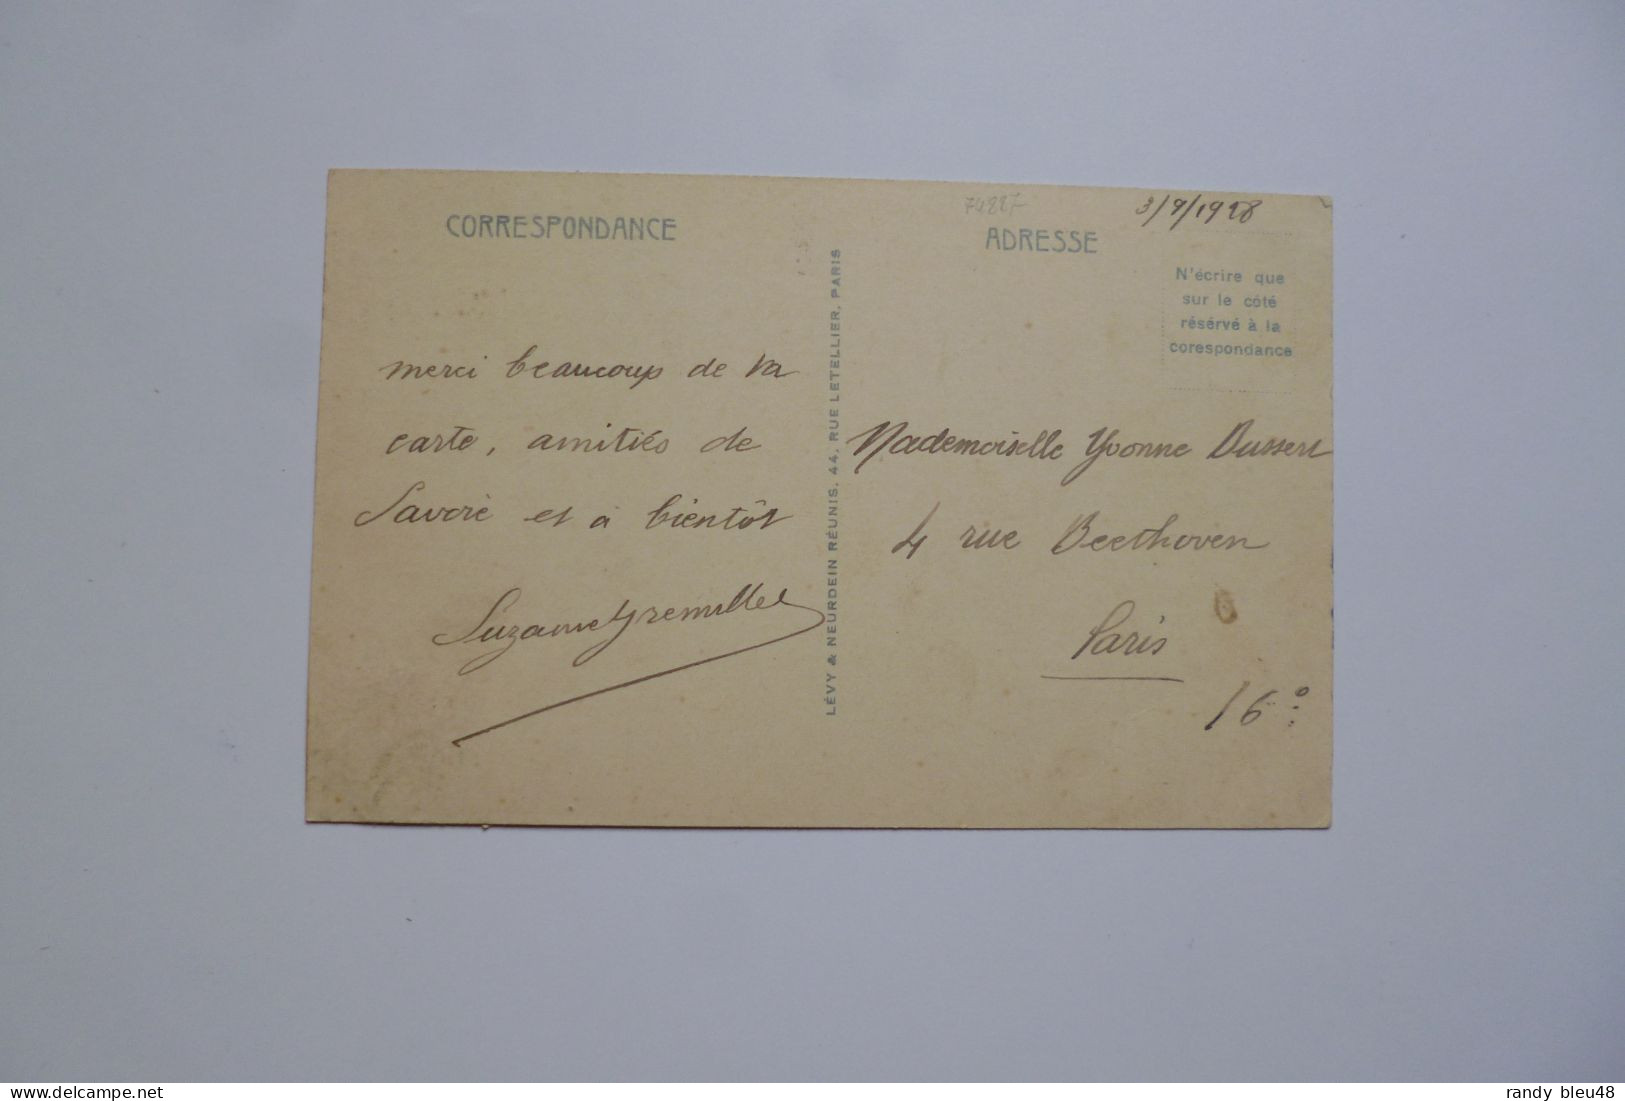 CORRESPONDANCE
merci beaucoup de ta
carte, amitiés de
Savoie et a bientôt
LÉVY & NEURDEIN RÉUNIS, 44, RUE LETELLIER, PARIS
74227
ADRESSE
3/9/1928
N'écrire que
sur le côté
résérvé à la
corespondance
Mademoiselle Yvonne Dussert
4 rue Beethoven
Paris
16°
delcampe.net
randy bleu48